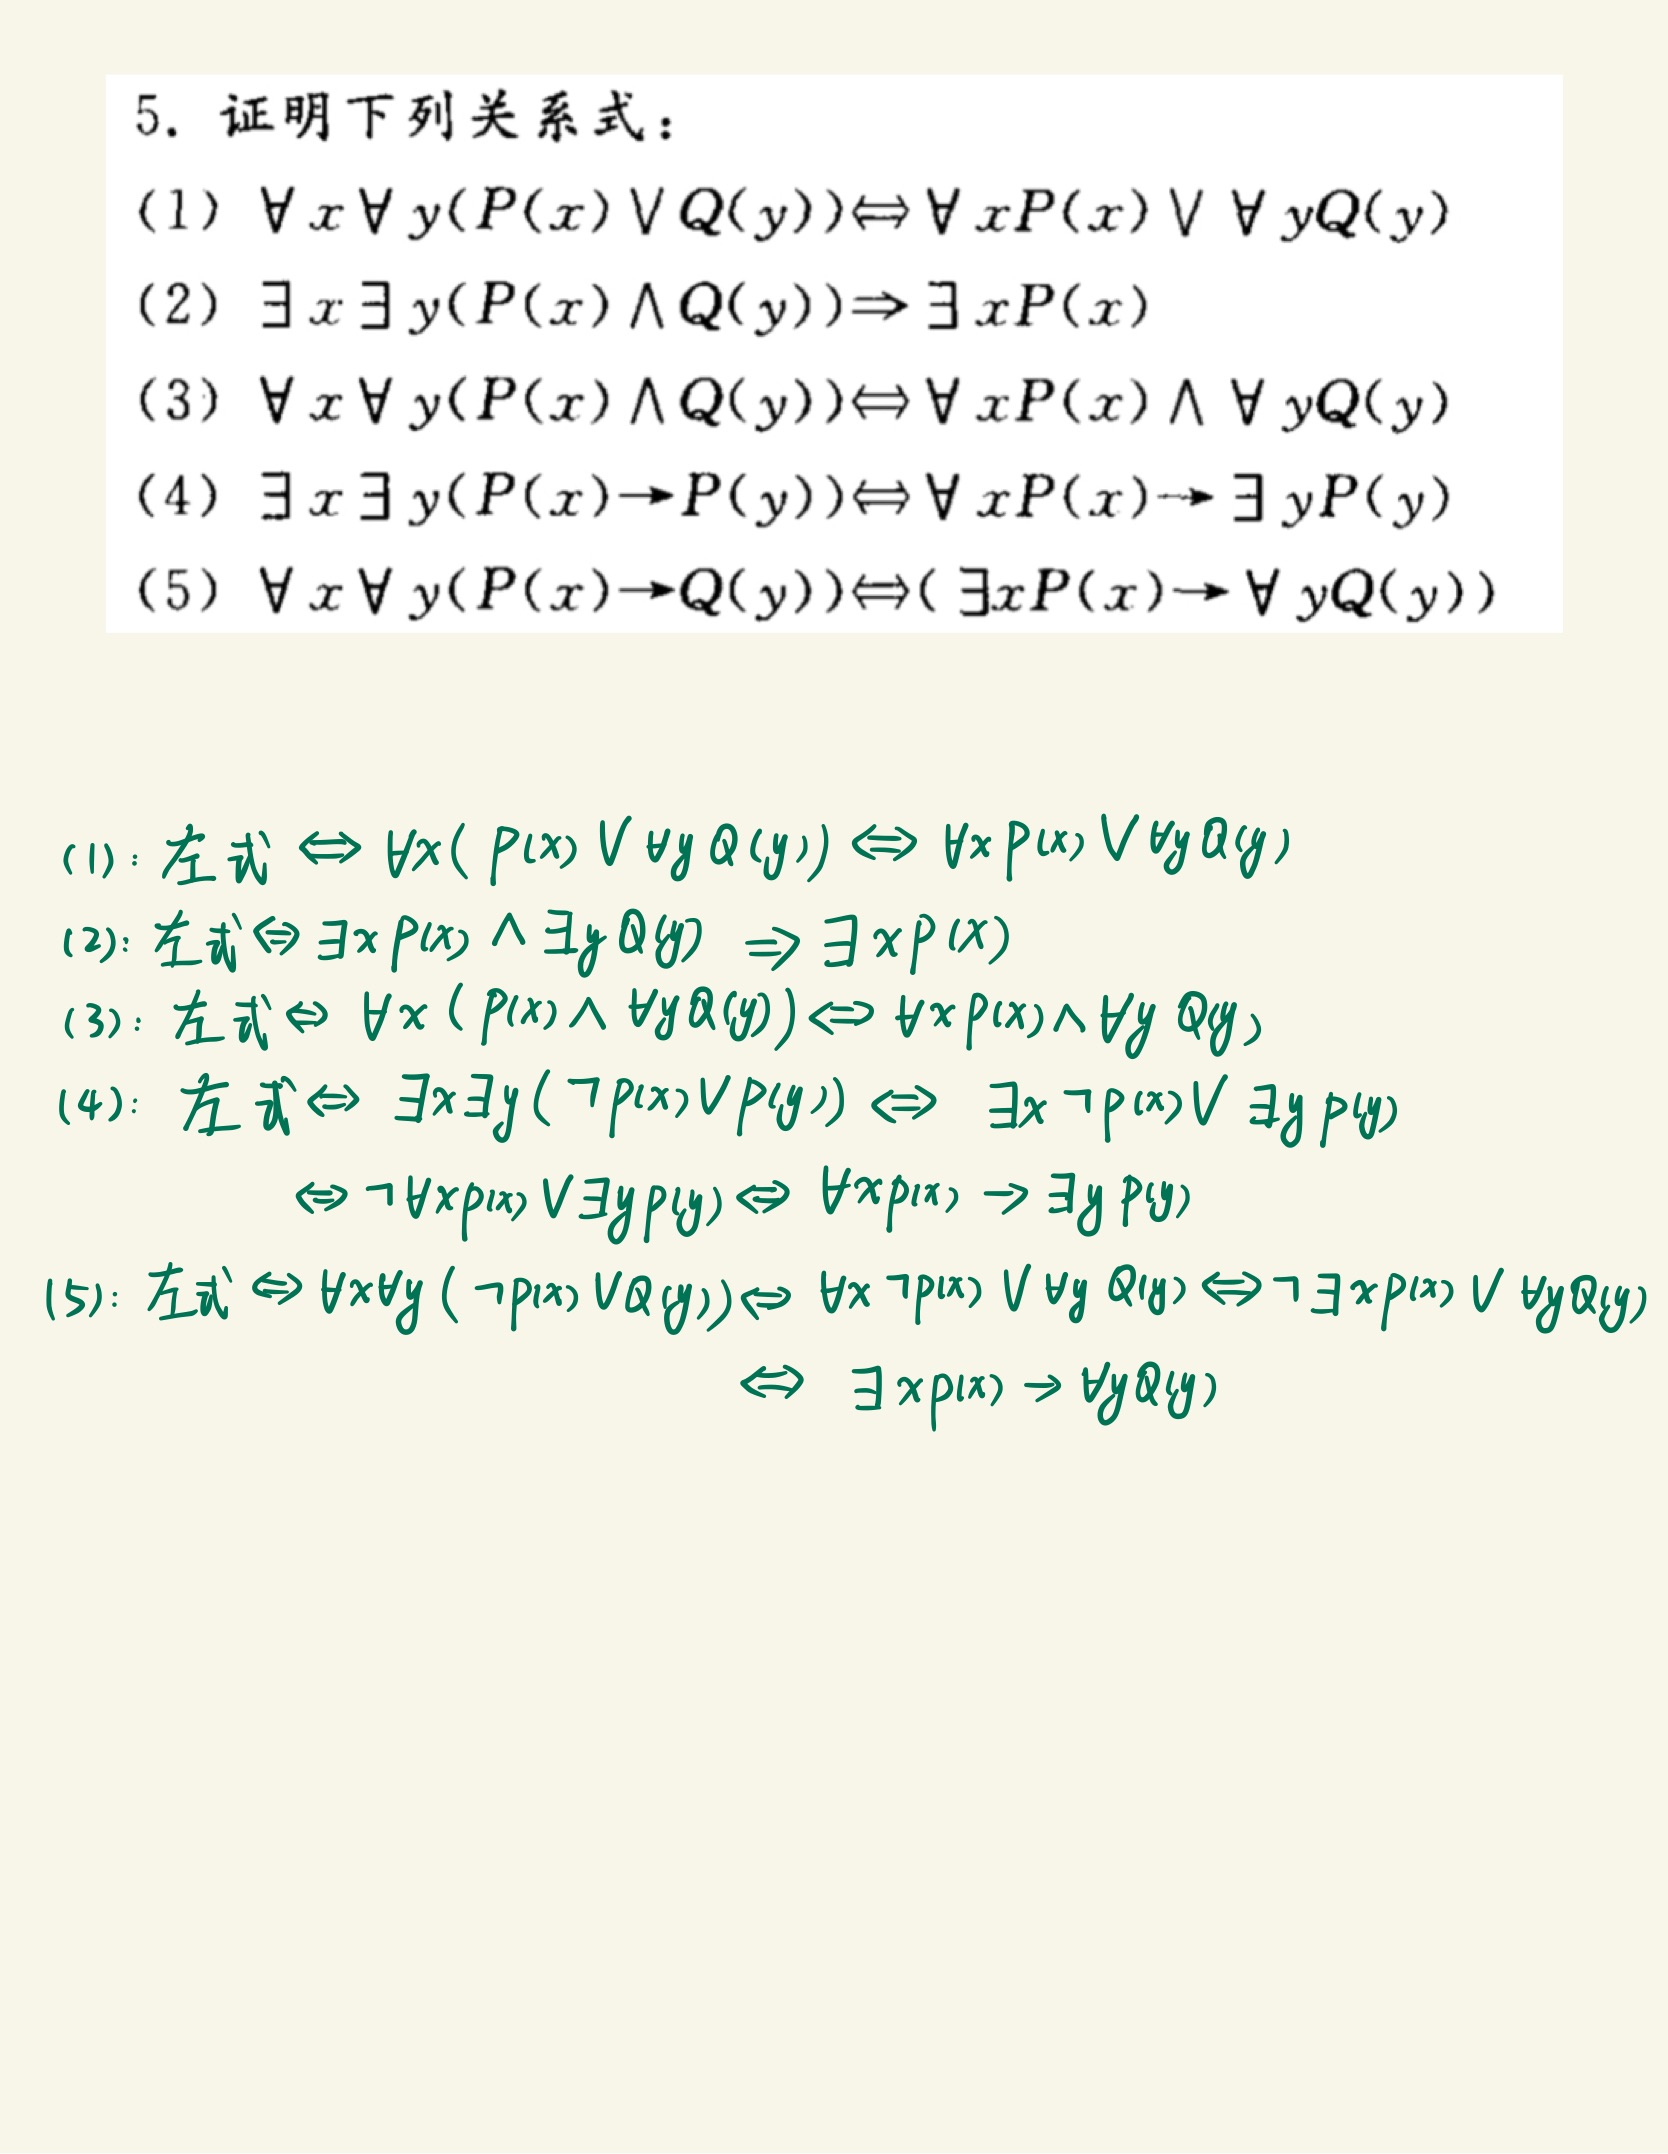 5. 证明下列关系式：
(1) ∀x∀y(P(x)∨Q(y))⇔∀xP(x)∨∀yQ(y)
(2) ∃x∃y(P(x)∧Q(y))⇒∃xP(x)
(3) ∀x∀y(P(x)∧Q(y))⇔∀xP(x)∧∀yQ(y)
(4) ∃x∃y(P(x)→P(y))⇔∀xP(x)→∃yP(y)
(5) ∀x∀y(P(x)→Q(y))⇔(∃xP(x)→∀yQ(y))
(1): 左式 ⇔ ∀x(P(x)∨∀yQ(y)) ⇔ ∀xP(x)∨∀yQ(y)
(2): 左式 ⇔ ∃xP(x)∧∃yQ(y) ⇒ ∃xP(x)
(3): 左式 ⇔ ∀x(P(x)∧∀yQ(y)) ⇔ ∀xP(x)∧∀yQ(y)
(4): 左式 ⇔ ∃x∃y(¬P(x)∨P(y)) ⇔ ∃x¬P(x)∨∃yP(y)
⇔ ¬∀xP(x)∨∃yP(y) ⇔ ∀xP(x)→∃yP(y)
(5): 左式 ⇔ ∀x∀y(¬P(x)∨Q(y)) ⇔ ∀x¬P(x)∨∀yQ(y) ⇔ ¬∃xP(x)∨∀yQ(y)
⇔ ∃xP(x)→∀yQ(y)